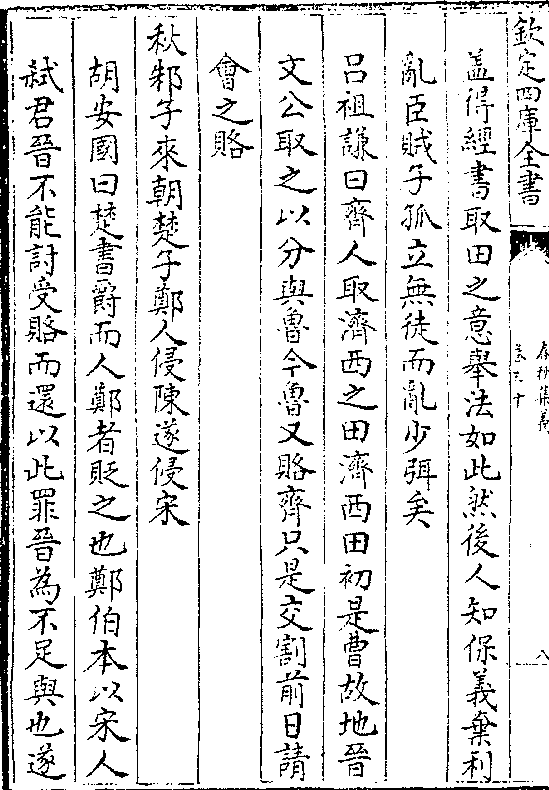 欽定四庫全書
春秋集義
卷三十
八
蓋得經書取田之意舉法如此然後人知保義棄利
亂臣賊子孤立無徒而亂少弭矣
呂祖謙曰齊人取濟西之田濟西田初是曹故地晉
文公取之以分與魯今魯又賂齊只是交割前日請
會之賂
秋邾子來朝楚子鄭人侵陳遂侵宋
胡安國曰楚書爵而人鄭者貶之也鄭伯本以宋人
弒君晉不能討受賂而還以此罪晉為不足與也遂